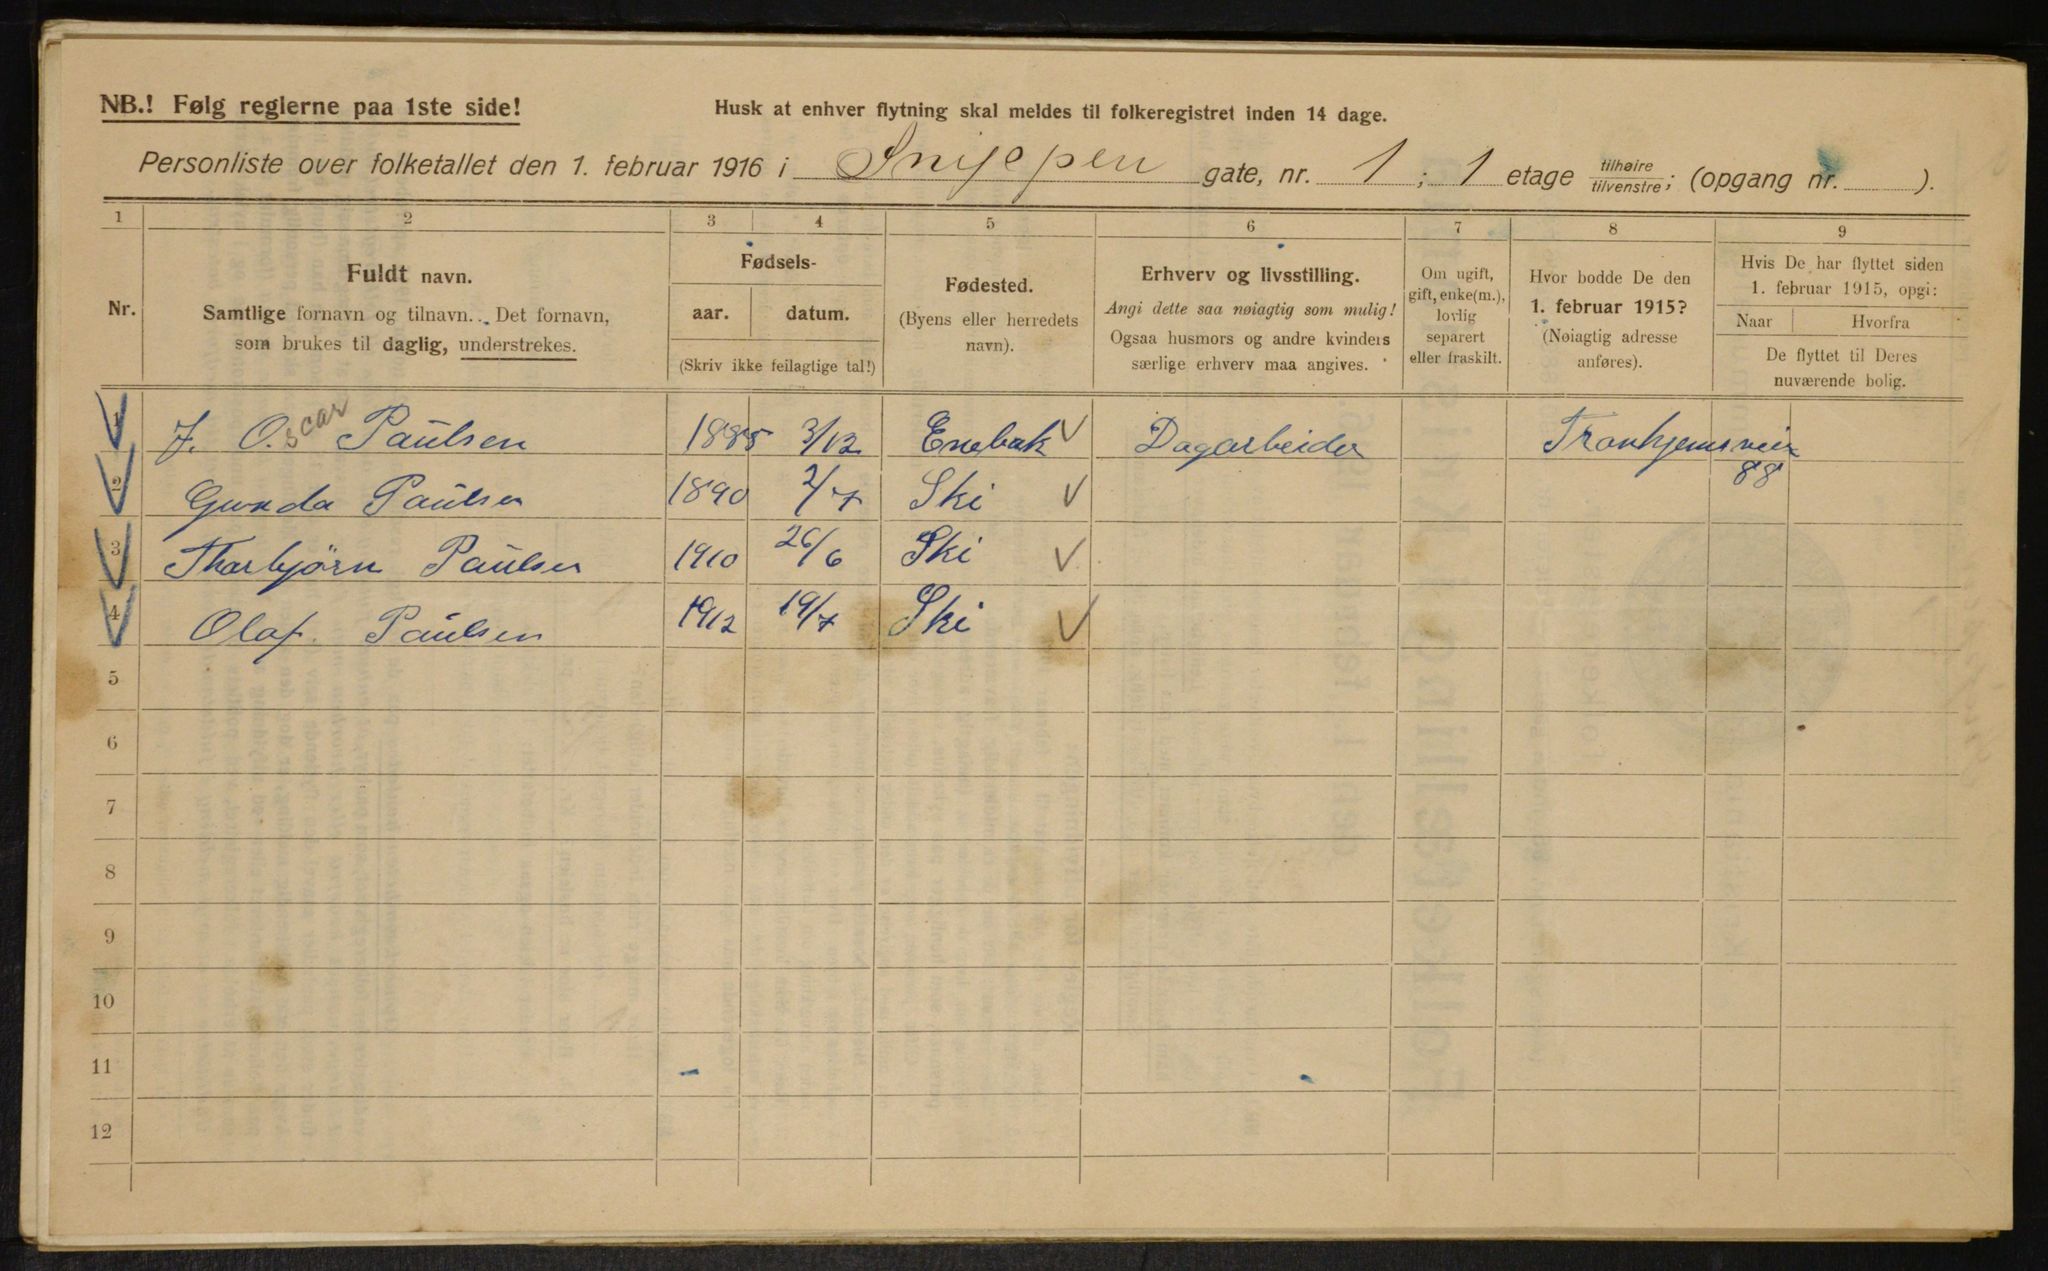 NB.! Følg reglerne paa 1ste side!
Husk at enhver flytning skal meldes til folkeregistret inden 14 dage.
Personliste over folketallet den 1. februar 1916 i Snijepen gate, nr. 1 ; 1 etage tilhøire/tilvenstre; (opgang nr. ).
1 2 3 4 5 6 7 8 9
Nr.
Fuldt navn.
Samtlige fornavn og tilnavn. Det fornavn,
som brukes til daglig, understrekes.
Fødsels-
aar. datum.
(Skriv ikke feilagtige tal!)
Fødested.
(Byens eller herredets
navn).
Erhverv og livsstilling.
Angi dette saa nøiagtig som mulig!
Ogsaa husmors og andre kvinders
særlige erhverv maa angives.
Om ugift,
gift, enke(m.),
lovlig
separert
eller fraskilt.
Hvor bodde De den
1. februar 1915?
(Nøiagtig adresse
anføres).
Hvis De har flyttet siden
1. februar 1915, opgi:
Naar Hvorfra
De flyttet til Deres
nuværende bolig.
1 J. Oscar Paulsen 1885 3/12 Enebak Dagarbeider Tronhjemsveien
88
2 Gunda Paulsen 1890 2/7 Ski
3 Thorbjørn Paulsen 1910 26/6 Ski
4 Olaf. Paulsen 1912 19/7 Ski
5
6
7
8
9
10
11
12